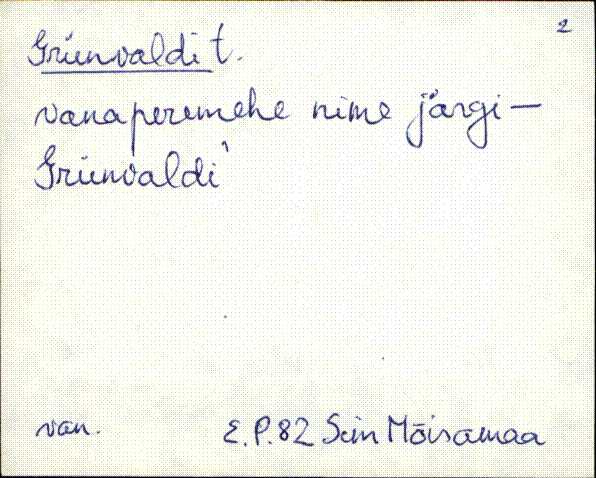 2
Grünvaldi t.
vanaperemehe nime järgi —
Grünvaldi`
van. E.P.82 Siin Mõisamaa